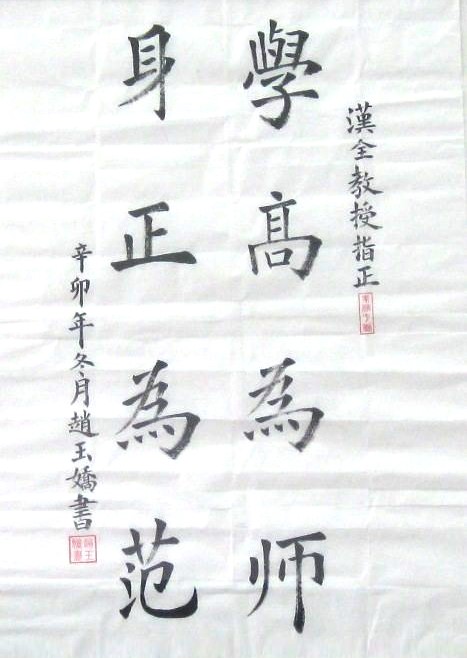 漢全教授指正
學髙為师
身正為范
辛卯年冬月趙玉嬌書